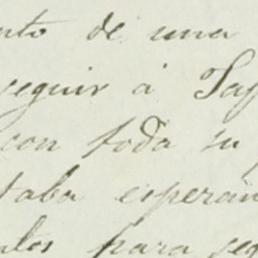 nto de una
seguir á Saf
con toda su
taba esperan
ntos para seg